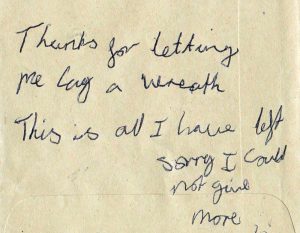 Thanks for letting
me lay a wreath
This is all I have left
sorry I could
not give
more